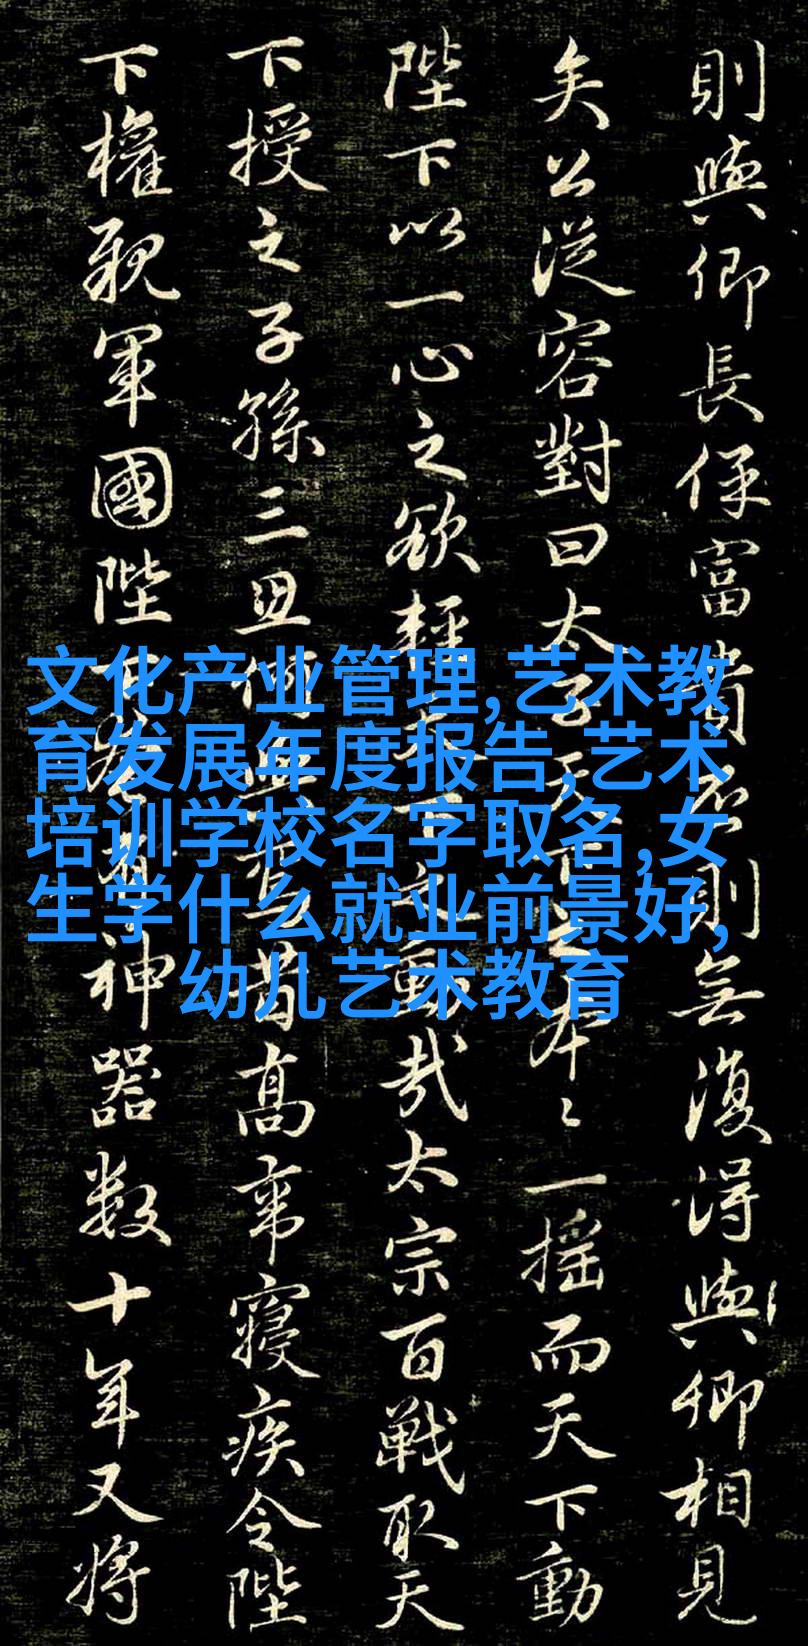 則與卿長保富貴則無復得與卿相見
矣公從容對曰太子天本〻一摇而天下動
陛下以一心之欲輕動哉太宗百戰取天
下授之子孫三昔高帝寢疾令陛
下權親軍國陛下神器數十年又將
文化产业管理,艺术教
育发展年度报告,艺术
培训学校名字取名,女
生学什么就业前景好,
幼儿艺术教育